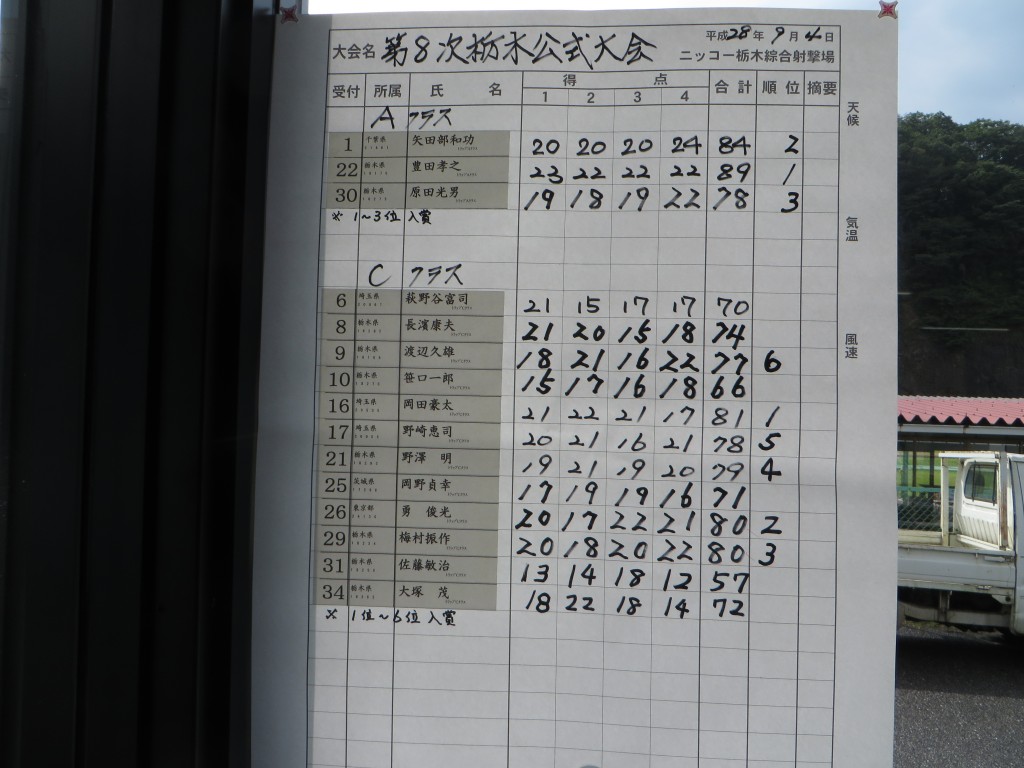 平成28年9月4日
大会名 第8次栃木公式大会 ニッコー栃木綜合射撃場
受付 所属 氏名 得点 合計 順位 摘要
1 2 3 4
A クラス
1 千葉県 矢田部和功 20 20 20 24 84 2
22 栃木県 豊田孝之 23 22 22 22 89 1
30 栃木県 原田光男 19 18 19 22 78 3
※ 1～3位 入賞
C クラス
6 埼玉県 荻野谷富司 21 15 17 17 70
8 栃木県 長濱康夫 21 20 15 18 74
9 栃木県 渡辺久雄 18 21 16 22 77 6
10 栃木県 笹口一郎 15 17 16 18 66
16 埼玉県 岡田豪太 21 22 21 17 81 1
17 埼玉県 野崎恵司 20 21 16 21 78 5
21 栃木県 野澤 明 19 21 19 20 79 4
25 茨城県 岡野貞幸 17 19 19 16 71
26 東京都 勇 俊光 20 17 22 21 80 2
29 栃木県 梅村振作 20 18 20 22 80 3
31 栃木県 佐藤敏治 13 14 18 12 57
34 栃木県 大塚 茂 18 22 18 14 72
※ 1位～6位 入賞
天候
気温
風速